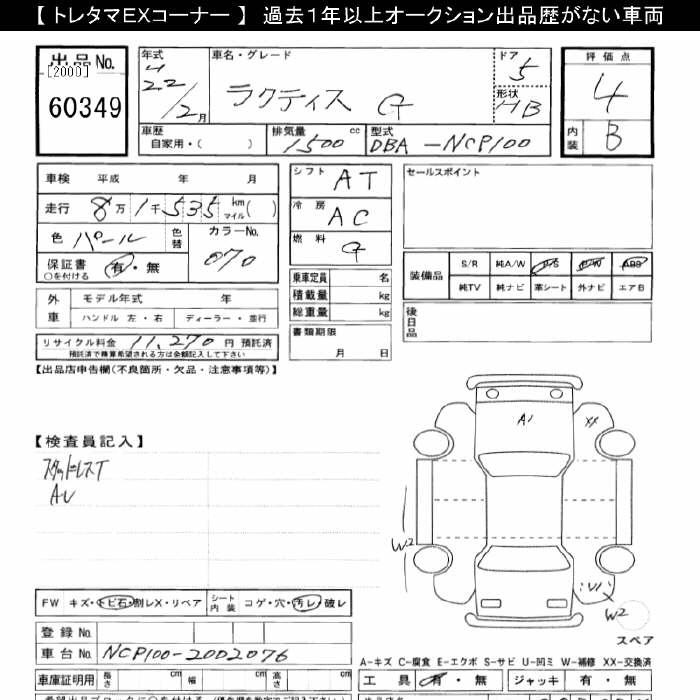 【 トレタマEXコーナー 】 過去１年以上オークション出品歴がない車両
出品No.
[2000]
60349
年式 H22/2月
車名・グレード ラクティス G
ドア 5
形状 HB
評価点 4
内装 B
車歴 自家用・( )
排気量 1,500 cc
型式 DBA-NCP100
車検 平成 年 月
走行 8万1千535 km マイル( )
色 パール 色替 カラーNo. 070
保証書 ○を付ける 有・無
外車 モデル年式 年
ハンドル 左・右 ディーラー・並行
リサイクル料金 11,270 円 預託済
預託済で精算希望される方は金額記入して下さい
シフト AT
冷房 AC
燃料 G
乗車定員 名
積載量 kg
総重量 kg
書類期限
月 日
セールスポイント
装備品 S/R 純A/W P/S P/W ABS
純TV 純ナビ 革シート 外ナビ エアB
後日品
【出品店申告欄(不良箇所・欠品・注意事項等)】
【検査員記入】
スタッドレスT
A1 XX
W2
W2
スペア
FW キズ・トビ石・割レX・リペア シート内装 コゲ・穴・汚レ・破レ
登録No.
車台No. NCP100-2002076
車庫証明用 長さ cm 幅 cm 高さ cm
A-キズ C-腐食 E-エクボ S-サビ U-凹ミ W-補修 XX-交換済
工具 有・無 ジャッキ 有・無